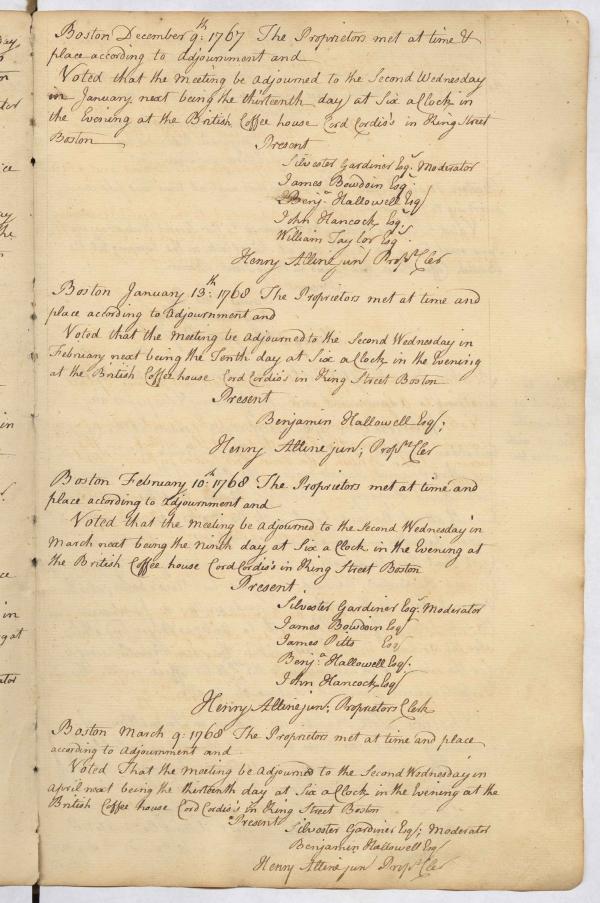 Boston December 9th: 1767 The Proprietors met at time &
place according to Adjournment and
Voted that the meeting be adjourned to the Second Wednesday
in January next being the thirteenth day at Six a Clock in
the Evening at the British Coffee house Cord Cordis's in King Street
Boston
Present
Silvester Gardiner Esqr. Moderator
James Bowdoin Esqr.
Benja. Hallowell Esq
John Hancock Esqr.
William Taylor Esqr.
Henry Alline junr Propr. Cler
Boston January 13th: 1768 The Proprietors met at time and
place according to Adjournment and
Voted that the meeting be adjourned to the Second Wednesday in
February next being the Tenth day at Six a Clock in the Evening
at the British Coffee house Cord Cordis's in King Street Boston
Present
Benjamin Hallowell Esq;
Henry Alline jun; Props. Cler
Boston February 10th: 1768 The Proprietors met at time and
place according to adjournment and
Voted that the meeting be adjourned to the Second Wednesday in
March next being the Ninth day at Six a Clock in the Evening at
the British Coffee house Cord Cordis's in King Street Boston
Present
Silvester Gardiner Esqr. Moderator
James Bowdoin Esq
James Pitts Esq
Benja. Hallowell Esq.
John Hancock Esq
Henry Alline jun; Proprietors Clerk
Boston March 9: 1768 The Proprietors met at time and place
according to Adjournment and
Voted That the meeting be Adjourned to the Second Wednesday in
April next being the thirteenth day at Six a Clock in the Evening at the
British Coffee house Cord Cordis's in King Street Boston
Present
Silvester Gardiner Esq; Moderator
Benjamin Hallowell Esq
Henry Alline jun Props. Cler